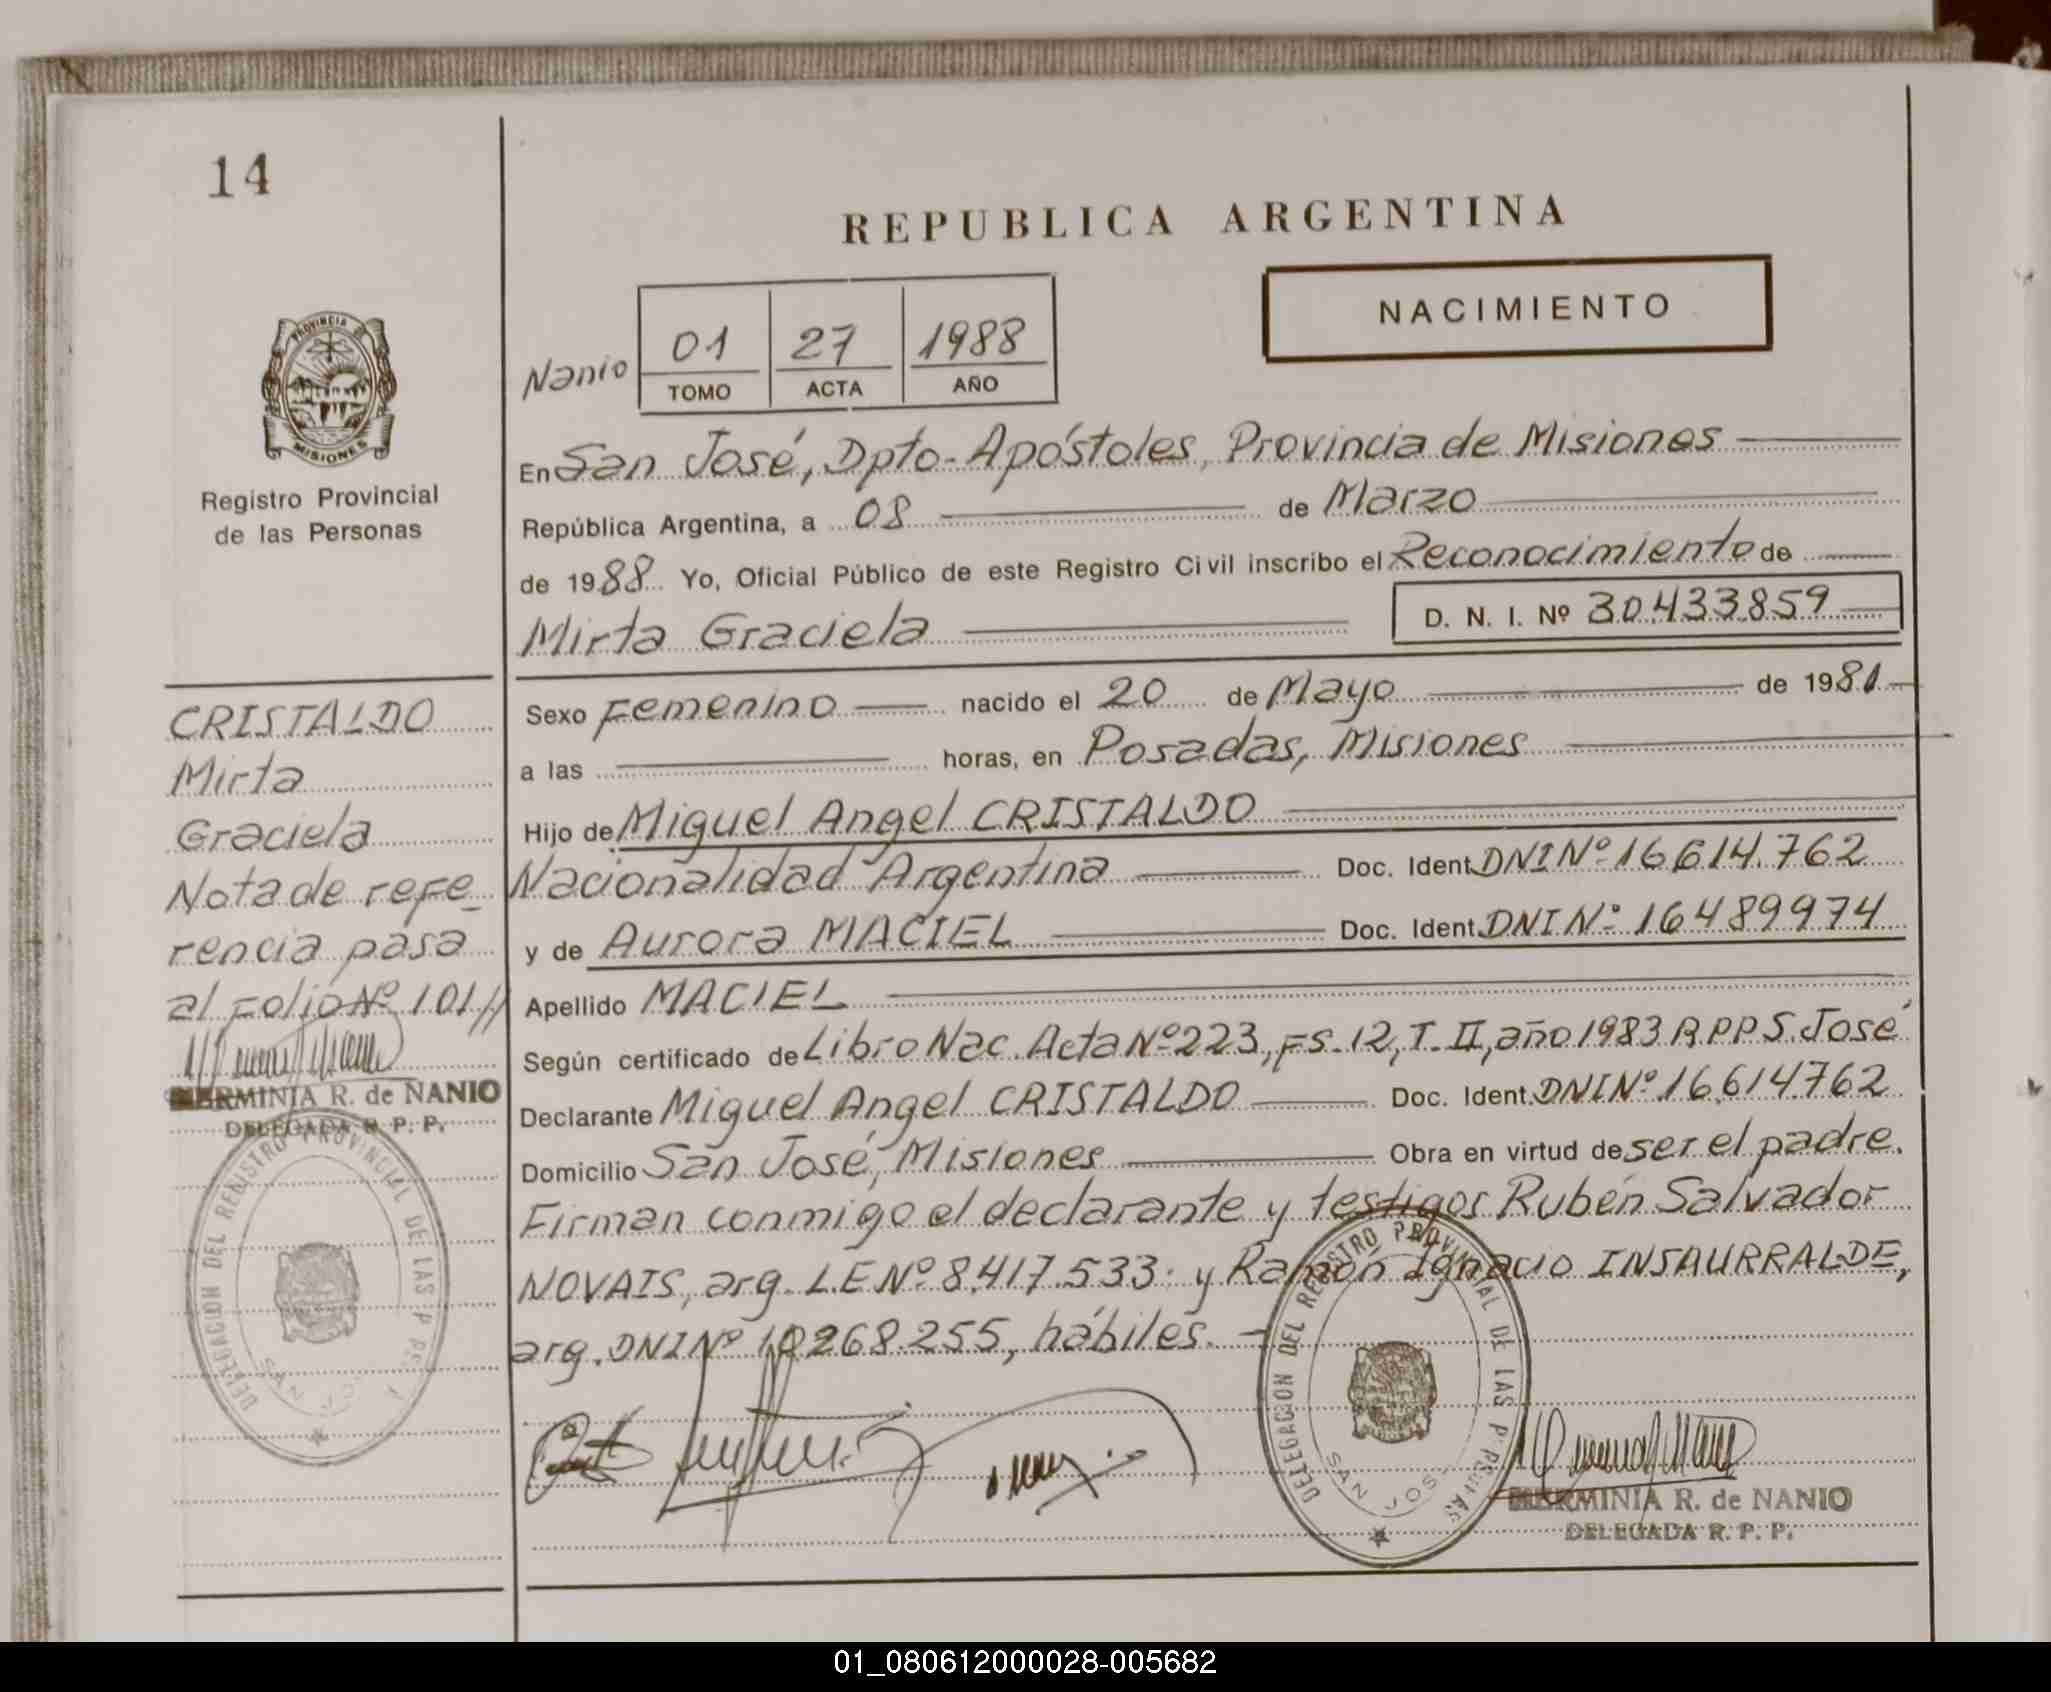 14
REPUBLICA ARGENTINA
NACIMIENTO
Nanio 01 27 1988
TOMO ACTA AÑO
PROVINCIA DE
MISIONES
Registro Provincial
de las Personas
En San José, Dpto. Apóstoles, Provincia de Misiones
República Argentina, a 08 de Marzo
de 1988 Yo, Oficial Público de este Registro Civil inscribo el Reconocimiento de
Mirta Graciela D. N. I. Nº 30.433.859
CRISTALDO
Mirta
Graciela
Nota de refe-
rencia pasa
al Folio Nº 101//
HERMINIA R. de NANIO
DELEGADA R. P. P.
DELEGACION DEL REGISTRO PROVINCIAL DE LAS P PS.
SAN JOS
Sexo Femenino nacido el 20 de Mayo de 1981
a las horas, en Posadas, Misiones
Hijo de Miguel Angel CRISTALDO
Nacionalidad Argentina Doc. Ident. DNI Nº 16614.762
y de Aurora MACIEL Doc. Ident. DNI Nº 16489974
Apellido MACIEL
Según certificado de Libro Nac. Acta Nº 223, Fs. 12, T. II, año 1983 R.P.P. S. José
Declarante Miguel Angel CRISTALDO Doc. Ident. DNI Nº 16.614.762
Domicilio San José, Misiones Obra en virtud de ser el padre.
Firman conmigo el declarante y testigos Rubén Salvador
NOVAIS, arg. L.E Nº 8.417.533 y Ramón Ignacio INSAURRALDE,
arg. DNI Nº 10268.255, hábiles.
DELEGACION DEL REGISTRO PROVINCIAL DE LAS P PS
SAN JOS
HERMINIA R. de NANIO
DELEGADA R. P. P.
01_080612000028-005682